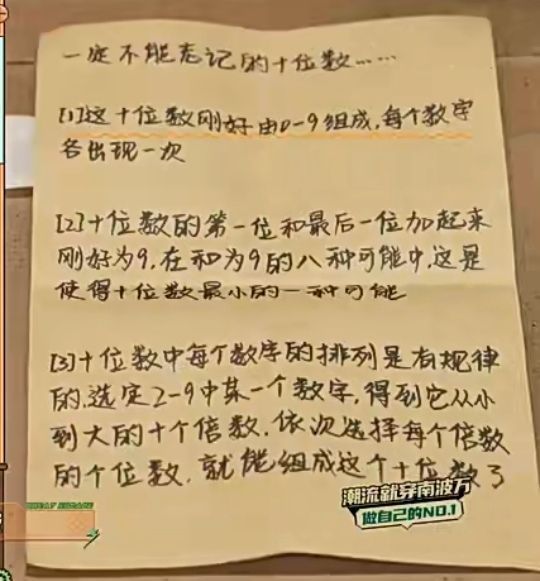 一定不能忘记的十位数……
[1]这十位数刚好由0-9组成,每个数字
各出现一次
[2]十位数的第一位和最后一位加起来
刚好为9,在和为9的八种可能中,这是
使得十位数最小的一种可能
[3]十位数中每个数字的排列是有规律
的,选定2-9中某一个数字,得到它从小
到大的十个倍数,依次选择每个倍数
的个位数,就能组成这个十位数了
潮流就穿南波万
做自己的NO.1